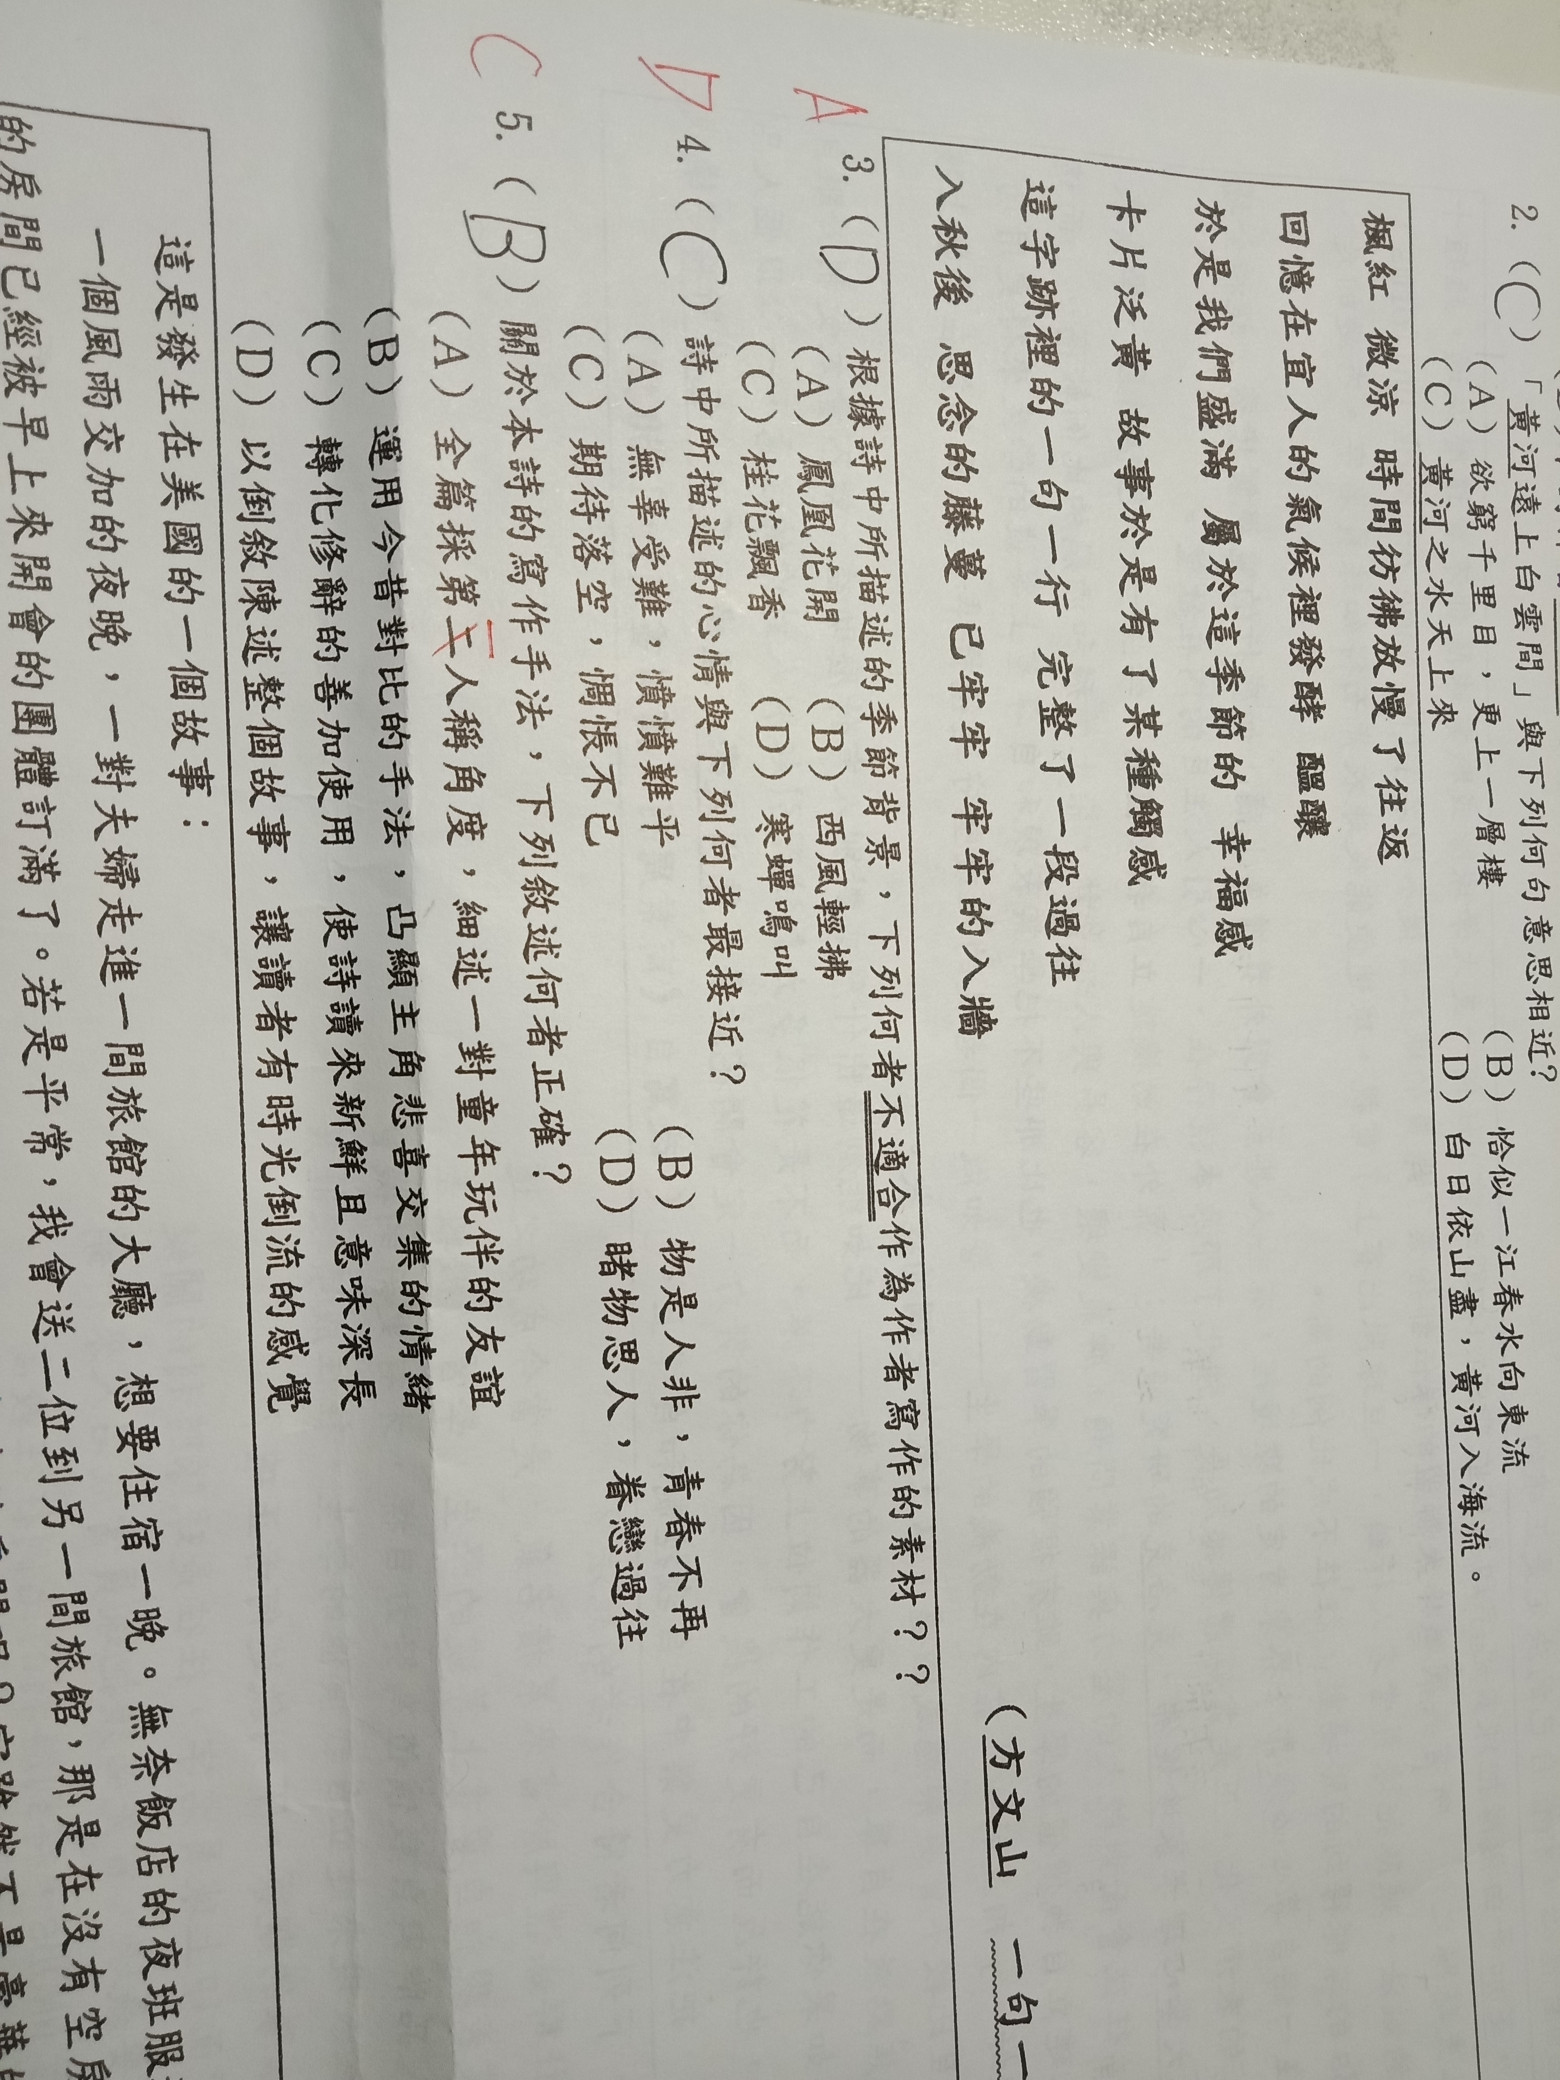 2. (C) 「黃河遠上白雲間」與下列何句意思相近?
(A) 欲窮千里目，更上一層樓 (B) 恰似一江春水向東流
(C) 黃河之水天上來 (D) 白日依山盡，黃河入海流。
楓紅 微涼 時間彷彿放慢了往返
回憶在宜人的氣候裡發酵 醞釀
於是我們盛滿 屬於這季節的 幸福感
卡片泛黃 故事於是有了某種觸感
這字跡裡的一句一行 完整了一段過往
入秋後 思念的藤蔓 已牢牢 牢牢的入牆
(方文山 一句一
A 3. (D) 根據詩中所描述的季節背景，下列何者不適合作為作者寫作的素材？？
(A) 鳳凰花開 (B) 西風輕拂
(C) 桂花飄香 (D) 寒蟬鳴叫
D 4. (C) 詩中所描述的心情與下列何者最接近？
(A) 無辜受難，憤憤難平 (B) 物是人非，青春不再
(C) 期待落空，惆悵不已 (D) 睹物思人，眷戀過往
C 5. (B) 關於本詩的寫作手法，下列敘述何者正確？
一
(A) 全篇採第二人稱角度，細述一對童年玩伴的友誼
(B) 運用今昔對比的手法，凸顯主角悲喜交集的情緒
(C) 轉化修辭的善加使用，使詩讀來新鮮且意味深長
(D) 以倒敘陳述整個故事，讓讀者有時光倒流的感覺
這是發生在美國的一個故事：
一個風雨交加的夜晚，一對夫婦走進一間旅館的大廳，想要住宿一晚。無奈飯店的夜班服
的房間已經被早上來開會的團體訂滿了。若是平常，我會送二位到另一間旅館，那是在沒有空房